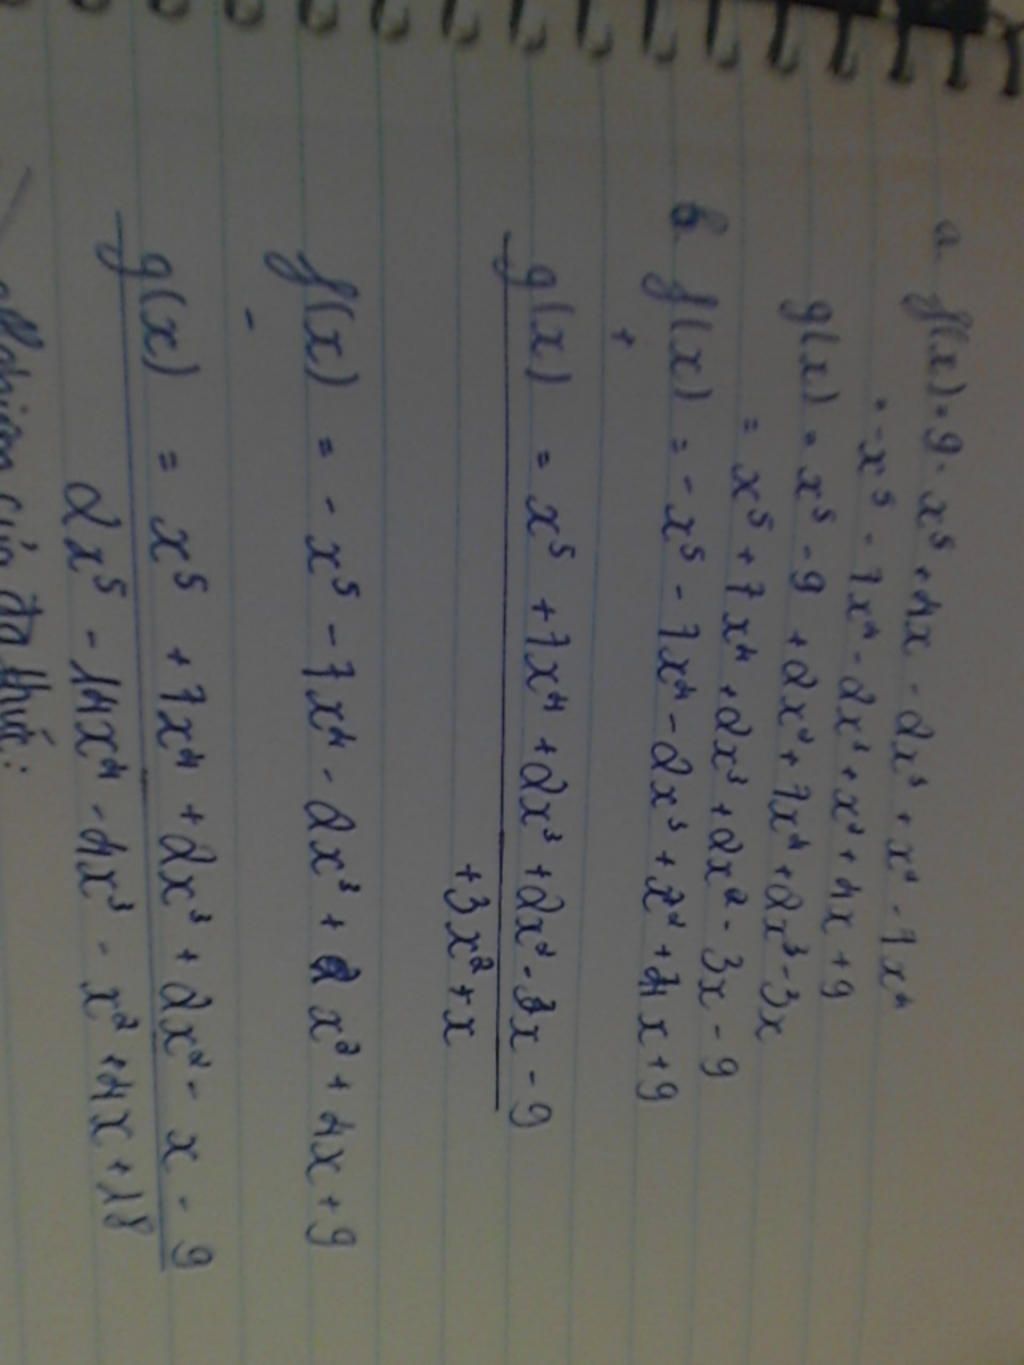 a f(x) = 9 - x⁵ + 4x - 2x³ + x² - 7x⁴
= -x⁵ - 7x⁴ - 2x³ + x² + 4x + 9
g(x) = x⁵ - 9 + 2x² + 7x⁴ + 2x³ - 3x
= x⁵ + 7x⁴ + 2x³ + 2x² - 3x - 9
b f(x) = - x⁵ - 7x⁴ - 2x³ + x² + 4x + 9
+
g(x) = x⁵ + 7x⁴ + 2x³ + 2x² - 3x - 9
+3x² + x
f(x) = - x⁵ - 7x⁴ - 2x³ + 2x² + 4x + 9
-
g(x) = x⁵ + 7x⁴ + 2x³ + 2x² - x - 9
2x⁵ - 14x⁴ - 4x³ - x² + 4x + 18
Nghiệm của đa thức: